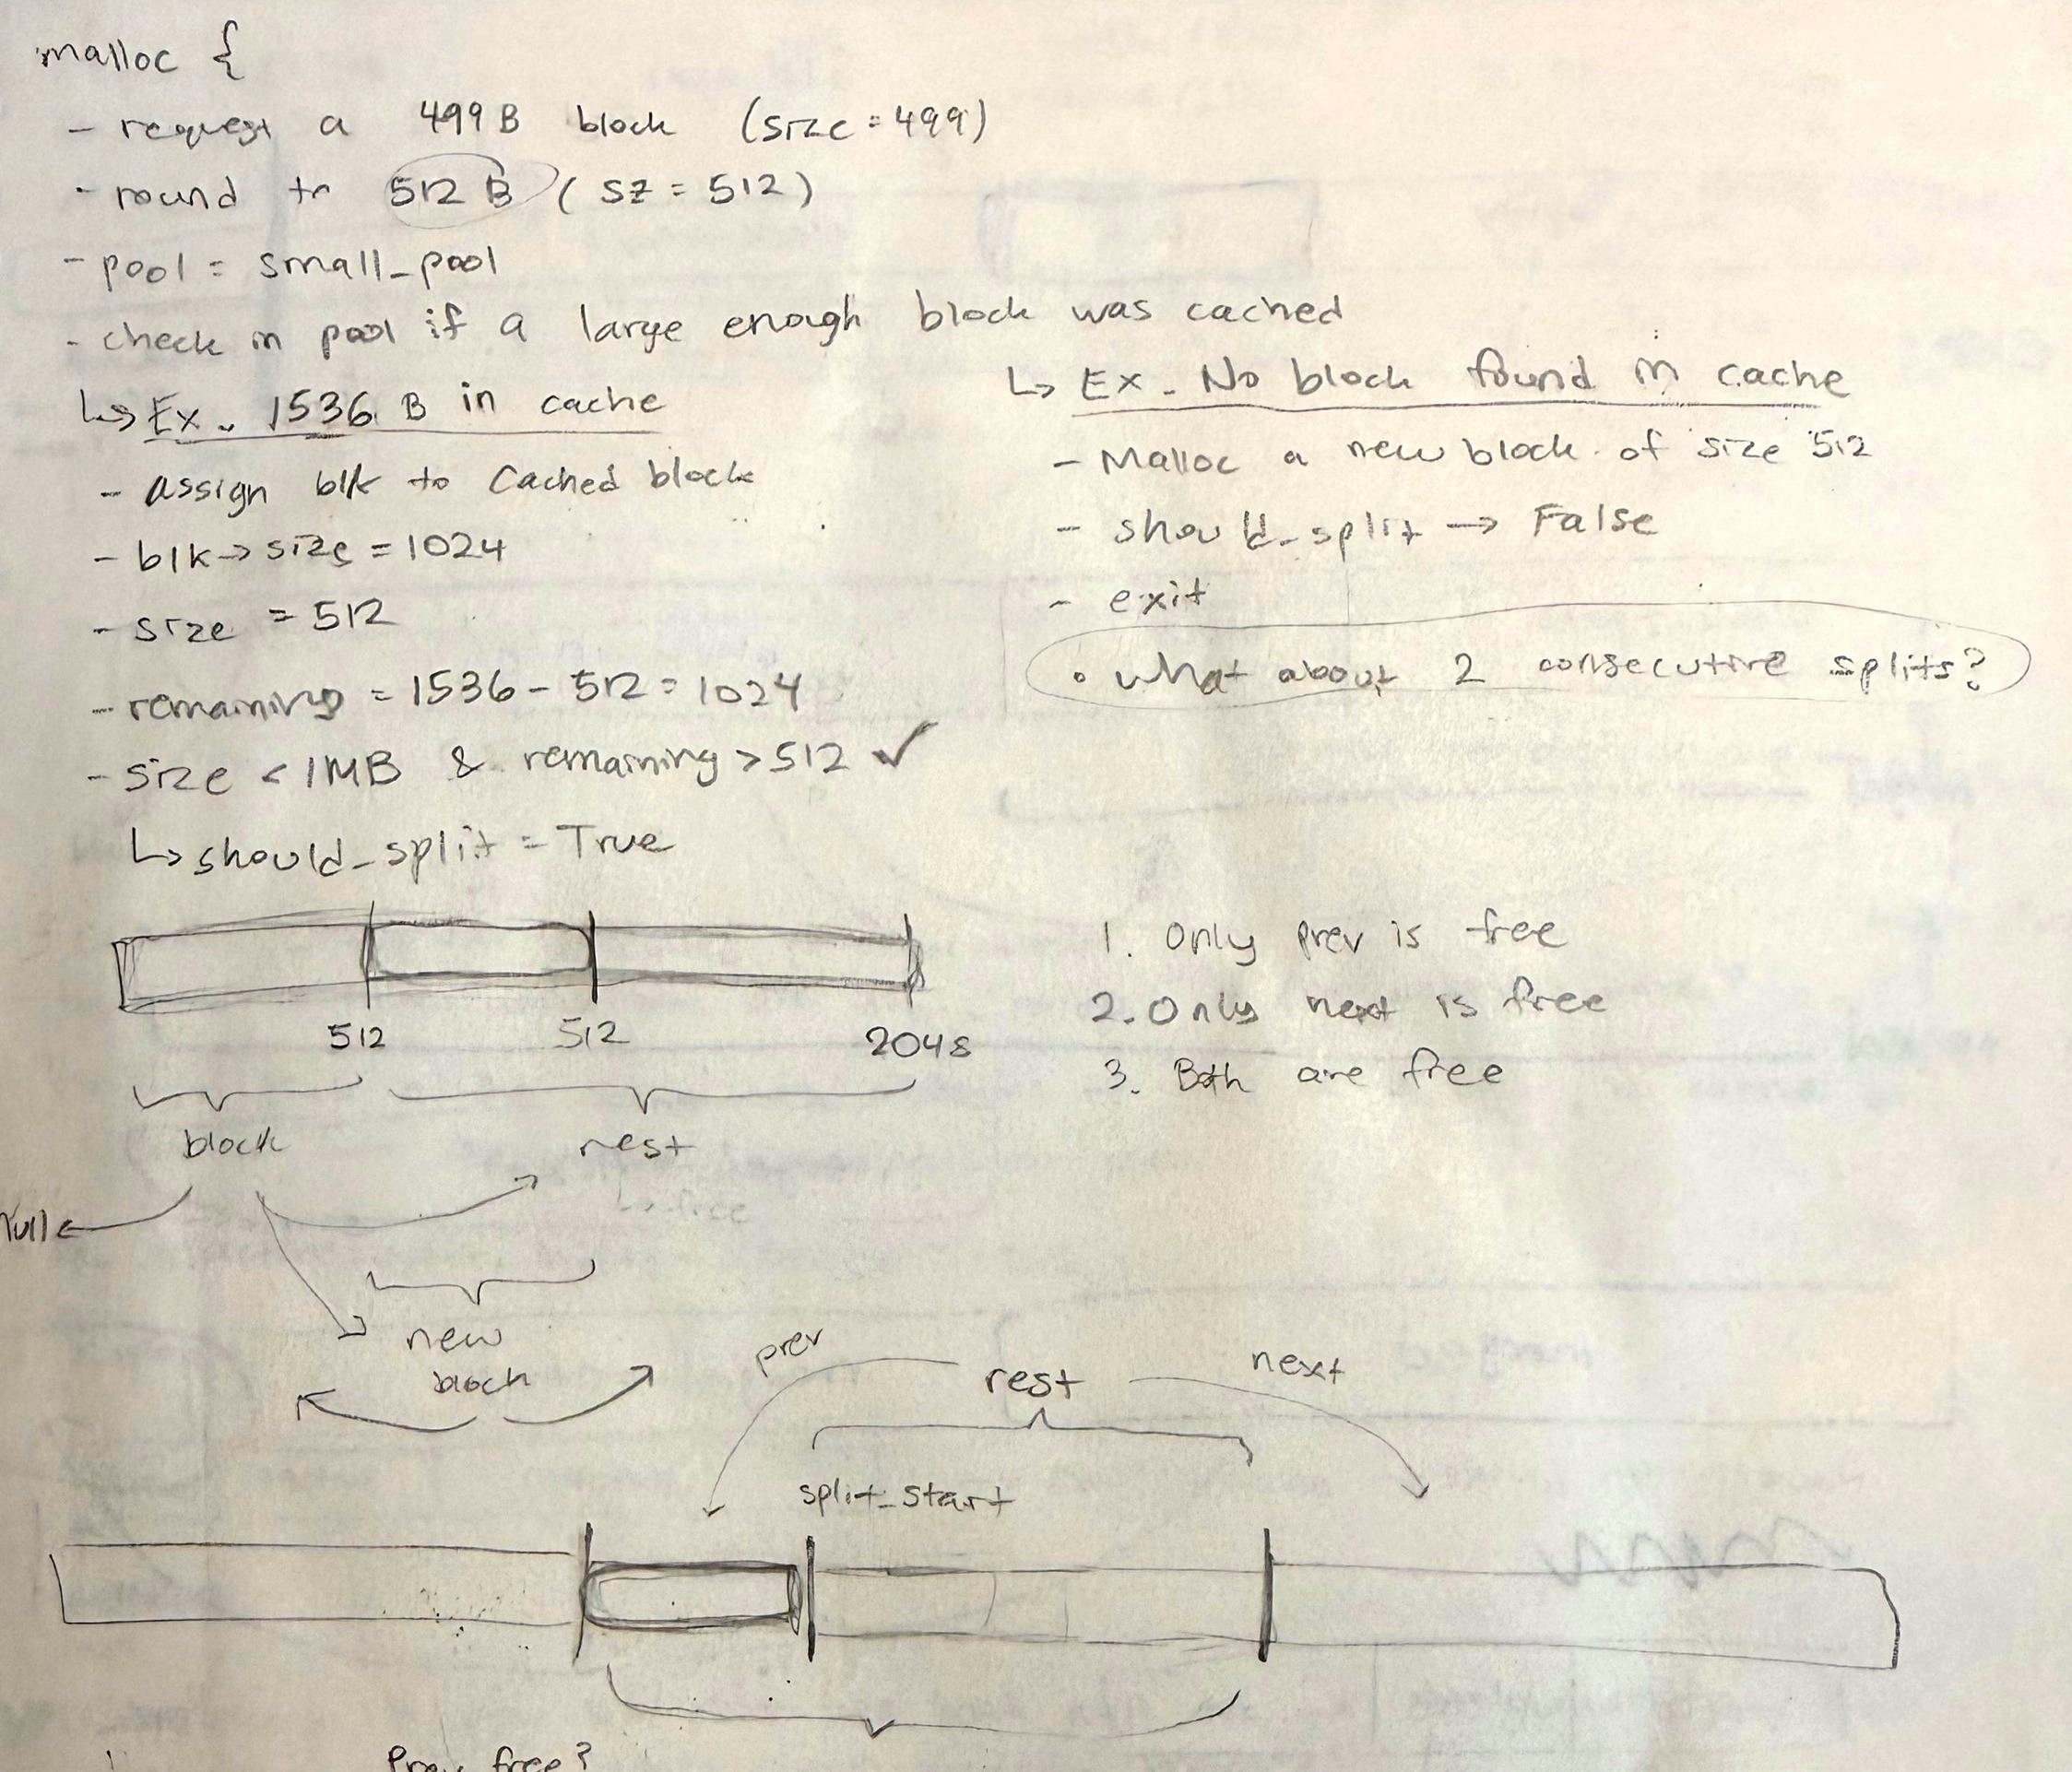 malloc {
- request a 499B block (size = 499)
- round to 512 B (sz = 512)
- pool = small_pool
- check in pool if a large enough block was cached
↳ Ex. 1536 B in cache
- assign blk to cached block
- blk->size = 1024
- size = 512
- remaining = 1536 - 512 = 1024
- size < 1MB & remaining > 512 ✓
↳ should_split = True
↳ Ex. No block found in cache
- Malloc a new block of size 512
- should_split → False
- exit
• what about 2 consecutive splits?
512 512 2048
block rest
null
new
block
1. Only prev is free
2. Only next is free
3. Both are free
prev rest next
split_start
Prev free?